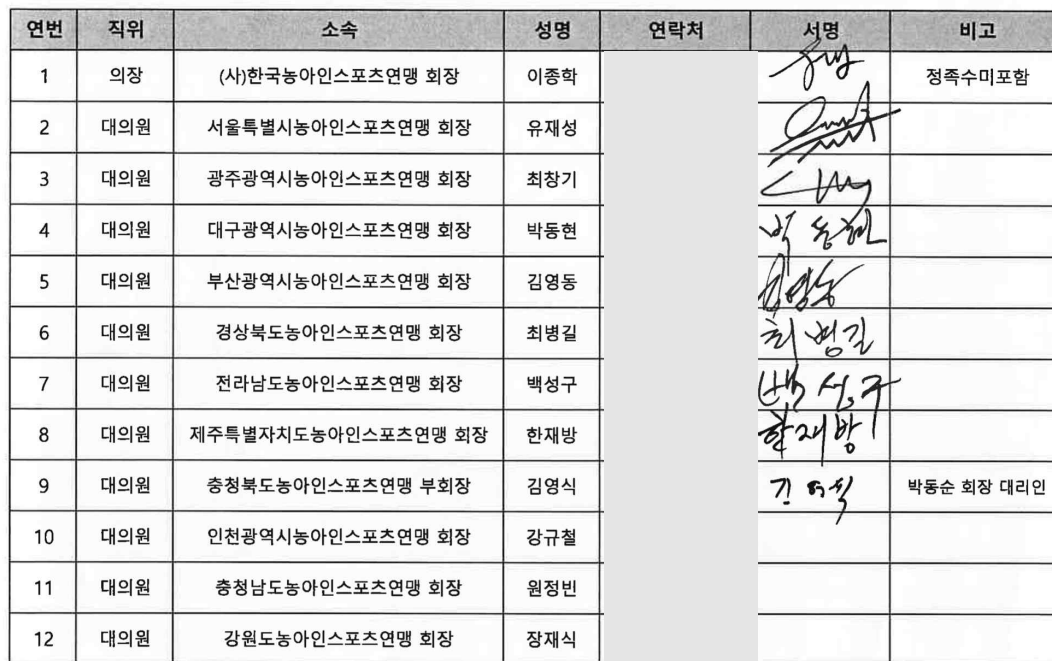 연번 직위 소속 성명 연락처 서명 비고
1 의장 (사)한국농아인스포츠연맹 회장 이종학 정족수미포함
2 대의원 서울특별시농아인스포츠연맹 회장 유재성
3 대의원 광주광역시농아인스포츠연맹 회장 최창기
4 대의원 대구광역시농아인스포츠연맹 회장 박동현 박동현
5 대의원 부산광역시농아인스포츠연맹 회장 김영동 김영동
6 대의원 경상북도농아인스포츠연맹 회장 최병길 최병길
7 대의원 전라남도농아인스포츠연맹 회장 백성구 백성구
8 대의원 제주특별자치도농아인스포츠연맹 회장 한재방 한재방
9 대의원 충청북도농아인스포츠연맹 부회장 김영식 김영식 박동순 회장 대리인
10 대의원 인천광역시농아인스포츠연맹 회장 강규철
11 대의원 충청남도농아인스포츠연맹 회장 원정빈
12 대의원 강원도농아인스포츠연맹 회장 장재식